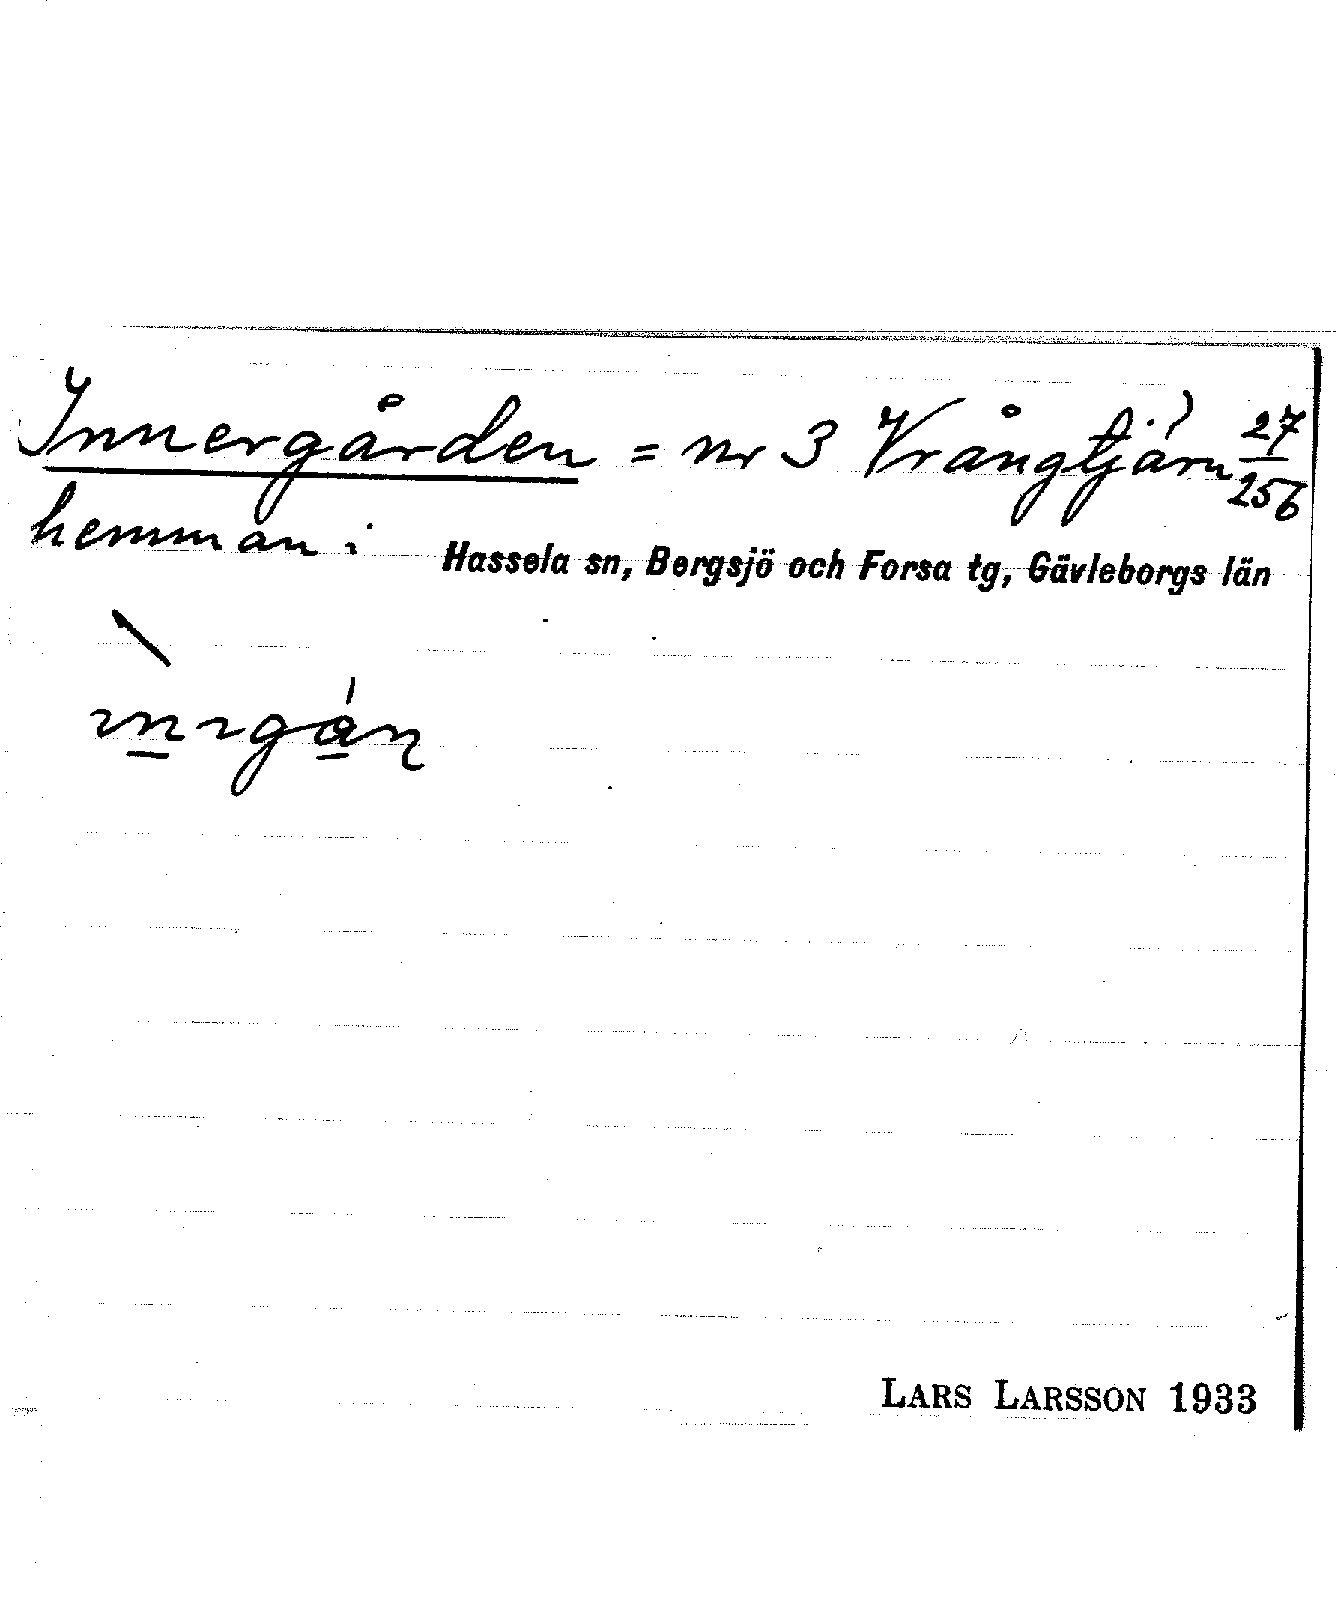 Innergården = nr 3 Vrångtjärn 27/256
hemman i Hassela sn, Bergsjö och Forsa tg, Gävleborgs län
LARS LARSSON 1933